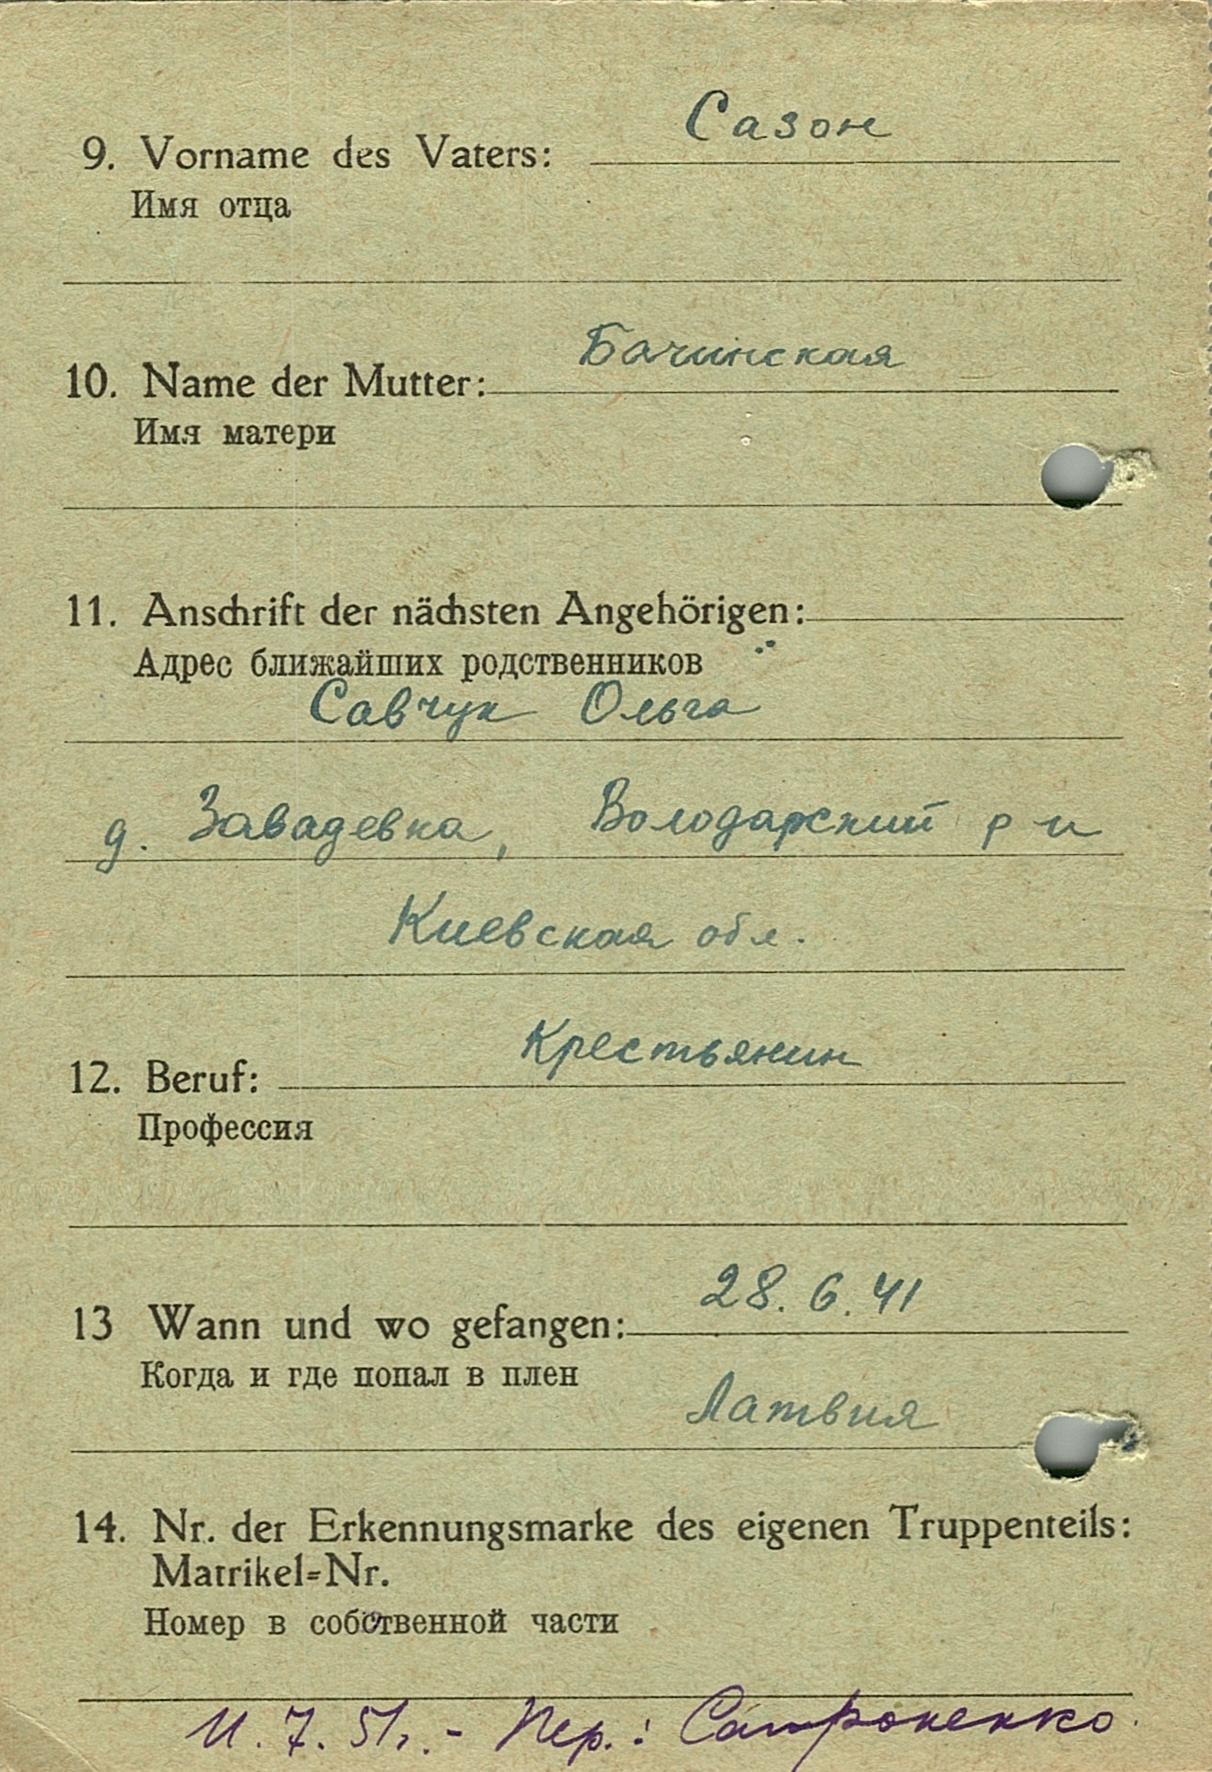 Сазон
9. Vorname des Vaters:
Имя отца
Бачинская
10. Name der Mutter:
Имя матери
11. Anschrift der nächsten Angehörigen:
Адрес ближайших родственников
Савчук Ольга
д. Завадевка, Володарский р н
Киевская обл.
Крестьянин
12. Beruf:
Профессия
28. 6. 41
13 Wann und wo gefangen:
Когда и где попал в плен
Латвия
14. Nr. der Erkennungsmarke des eigenen Truppenteils:
Matrikel=Nr.
Номер в собственной части
11. 7. 51г. - Пер.: